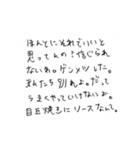 ほんとにそれでいいと
思ってんの？信じられ
ないわ。ゲンメツした。
私たち別れよ。だって
うまくやっていけないよ。
目玉焼きにソースなんて。